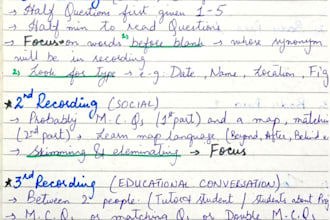 → Half Questions first given 1-5
→ Half min to read Questions
→ Focus on words before blank → whose synonym
will be in recording
2) Look for type → e.g: Date, Name, Location, Fig
* 2nd Recording (SOCIAL)
→ Probably M.C.Qs (1st part) and a map, matchin
(2nd part), Learn map language (Beyond, After, Behind
→ Skimming & eleminating → Focus
* 3rd Recording (EDUCATIONAL CONVERSATION)
→ Between 2 people. (Tutor & student / students about Pr
→ M.C.Qs or matching Qs or Double M.C.Qs